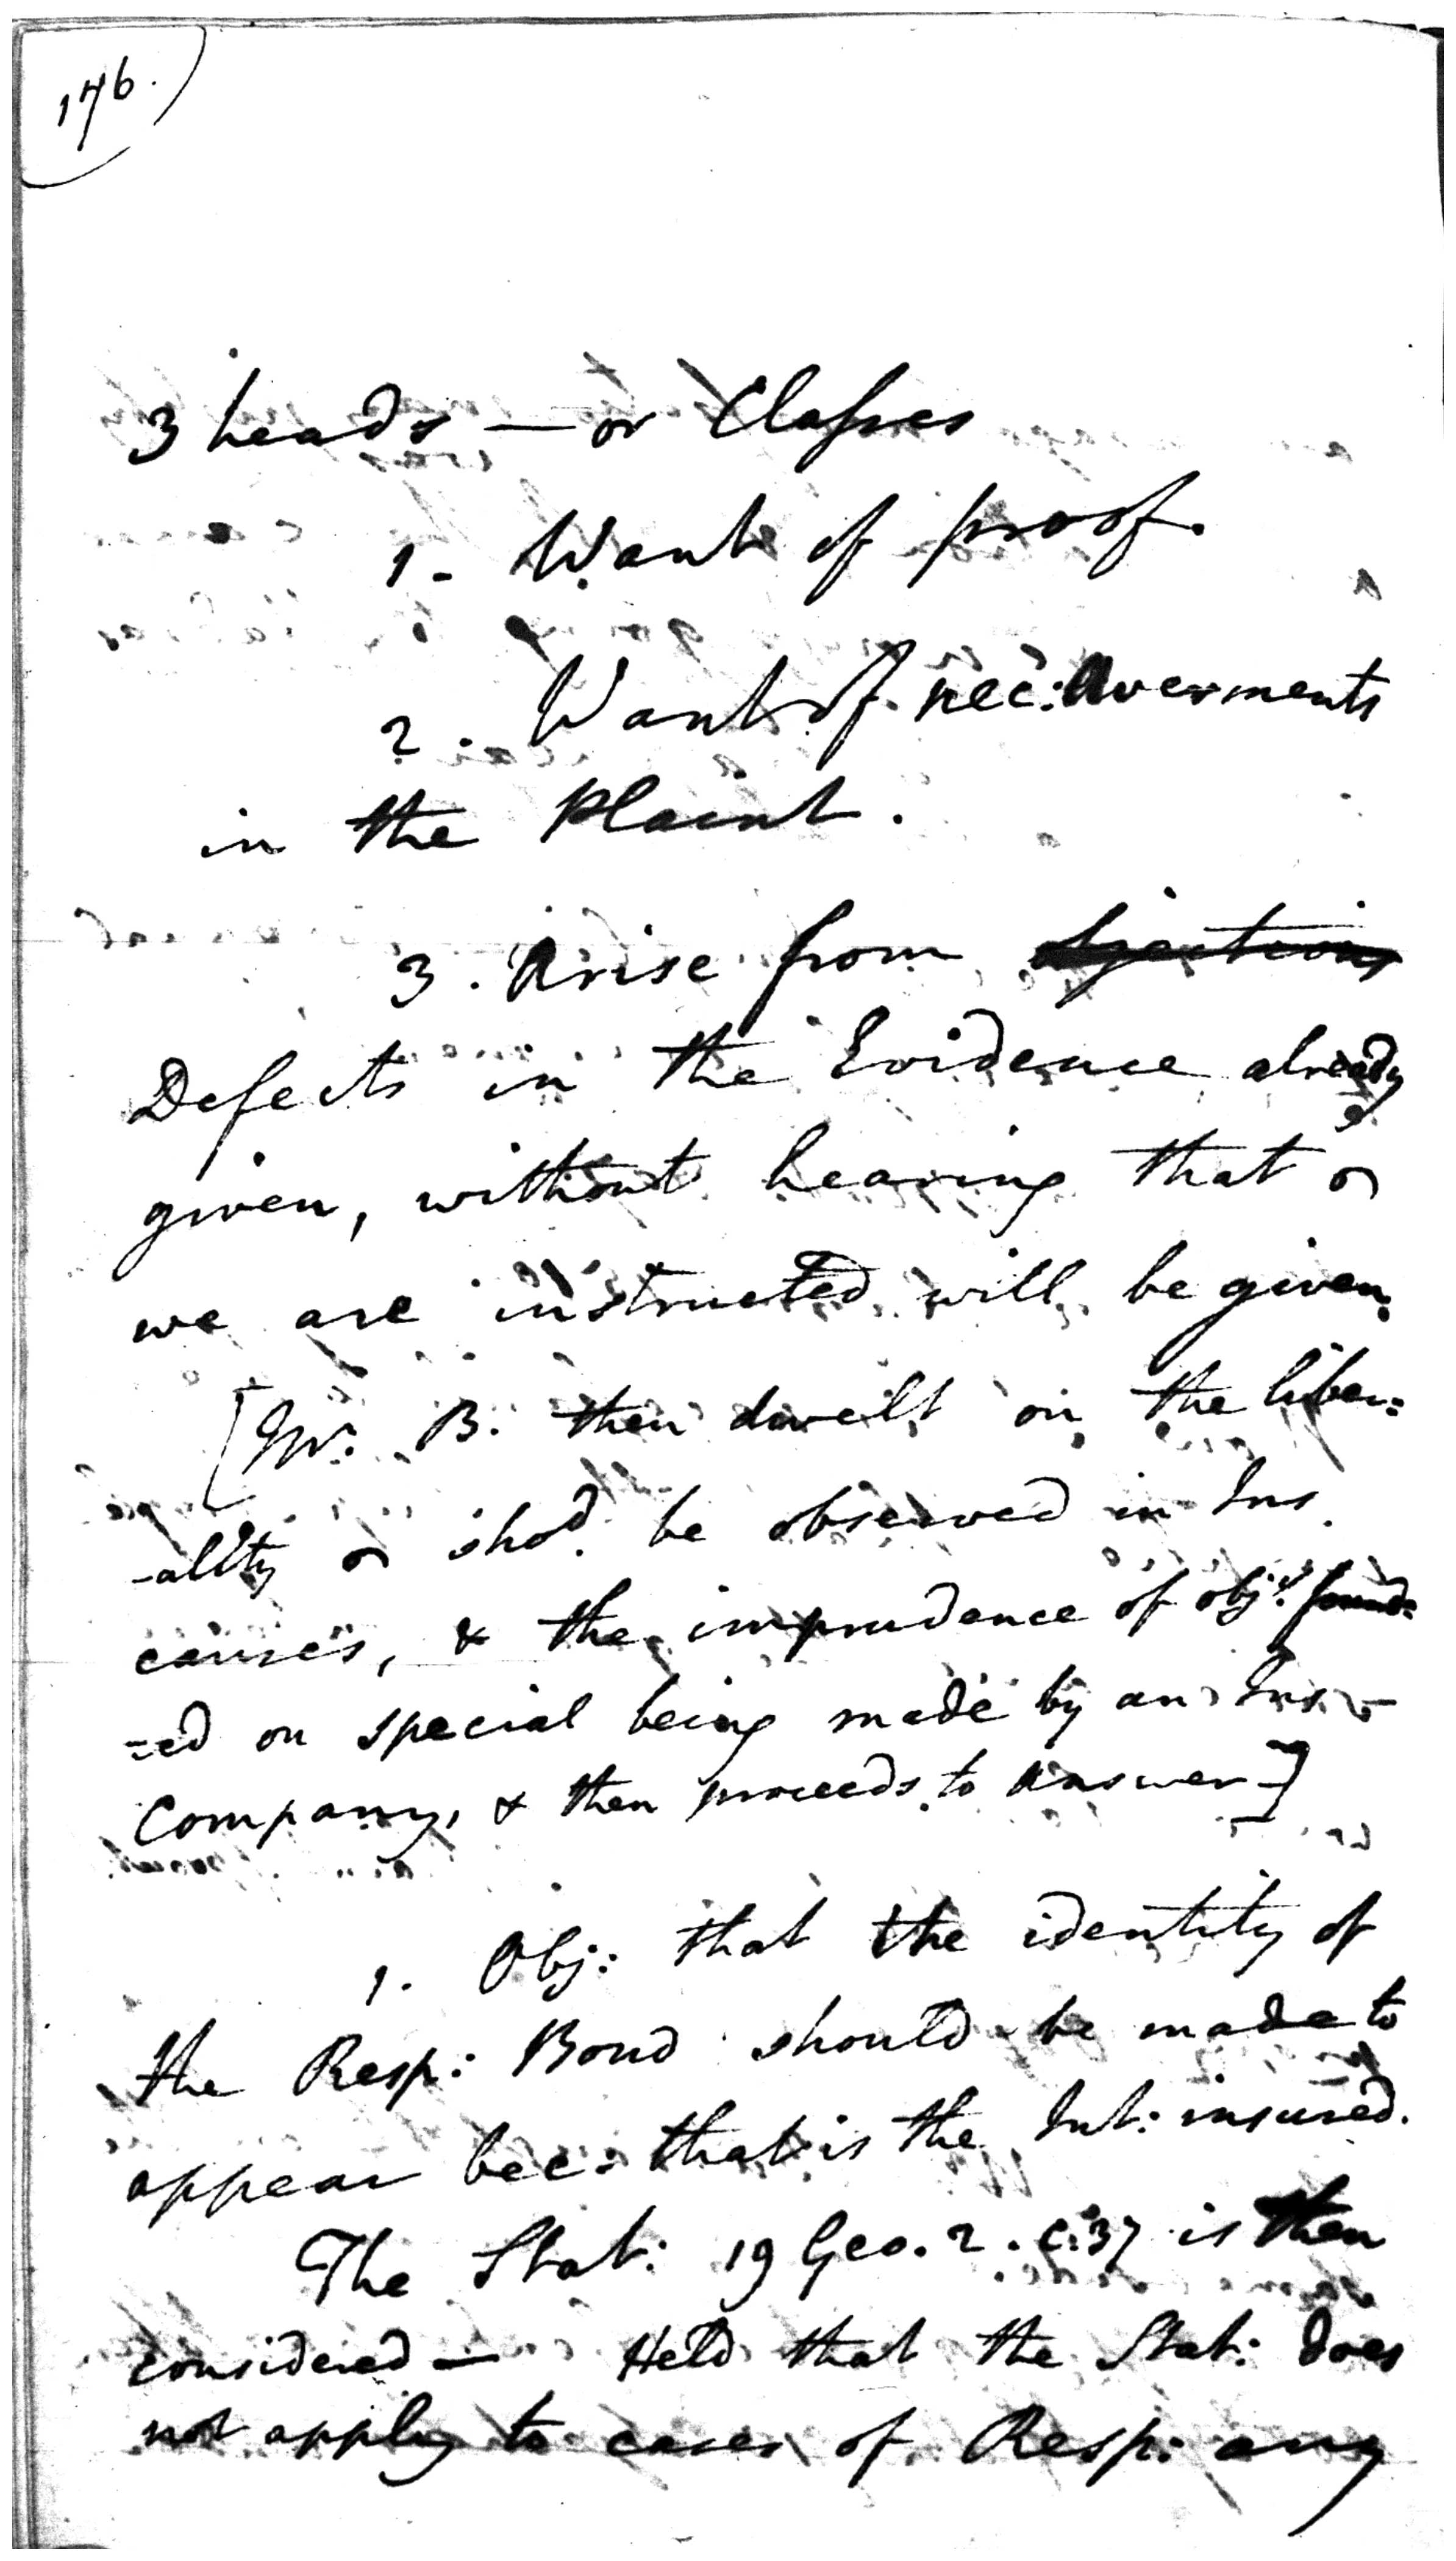 176.
3 heads — or Classes
1 - Want of proof.
2. Want of nec: Averments
in the Plaint.
3. Arise from
Defects in the Evidence already
given, without hearing that
we are instructed will be given.
[Mr. B. then dwelt on the liber:
-ality shod. be observed in Ins.
causes, & the imprudence of obj.s found:
=ed on special being made by an Ins.
Company, & then proceeds to answer-]
1. Obj: that the identity of
the Resp: Bond should be made to
appear bec: that is the Int: insured.
The Stat: 19 Geo. 2. c:37 is then
considered — Held that the Stat: does
not apply to cases of Resp: any